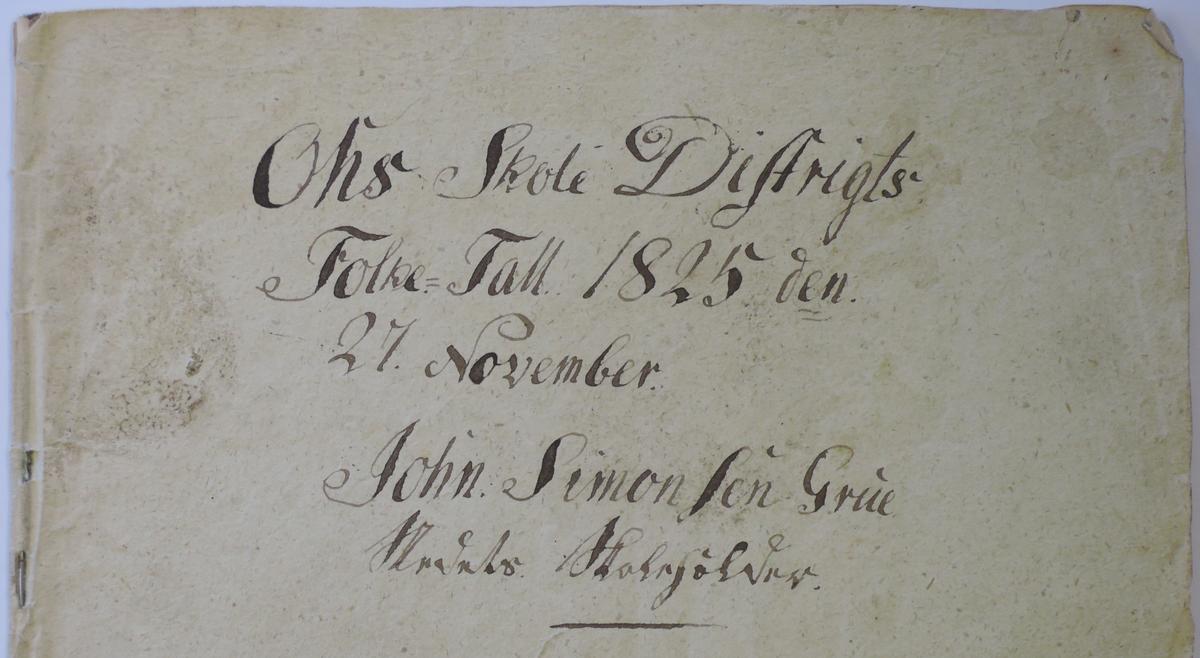 Ohs Skole Distrigts
Folke=Tall. 1825 den.
27. November.
John. Simonsen Grue
Stedets Skoleholder.